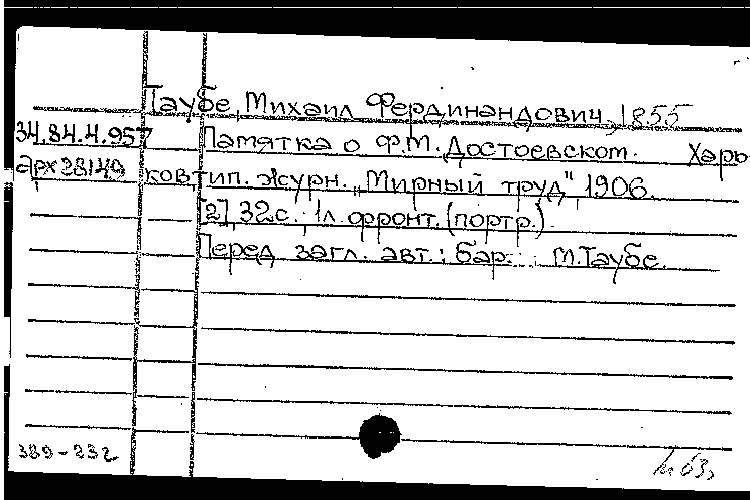 Таубе, Михаил Фердинандович, 1855
34.84.4.957 Памятка о Ф.М. Достоевском. Харь
арх28149 ков, тип. журн. „Мирный труд", 1906.
[2], 32с.; 1л. фронт. (портр.)
Перед загл. авт.: бар. М. Таубе.
389-232